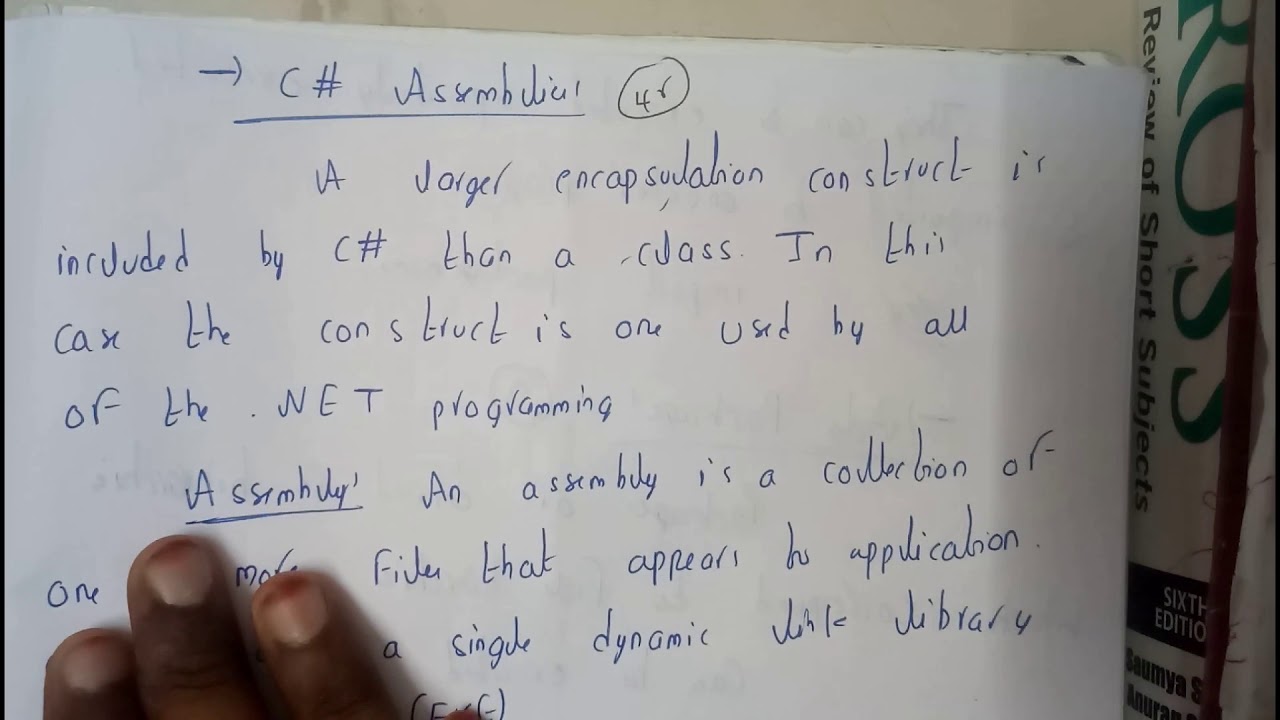 → C# Assemblies 4r
A larger encapsulation construct is
included by C# than a class. In this
case the construct is one used by all
of the .NET programming
Assembly: An assembly is a collection of
one more files that appears to application.
a single dynamic link library
(EXE)
ROSS
Review of Short Subjects
SIXTH
EDITIO
Saumya S